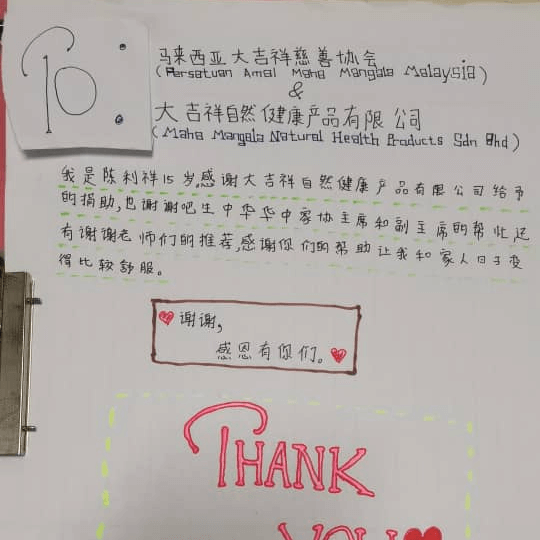 To:
马来西亚大吉祥慈善协会
(Persatuan Amal Maha Mangala Malaysia)
&
大吉祥自然健康产品有限公司
(Maha Mangala Natural Health Products Sdn Bhd)
我是陈利祥15岁,感谢大吉祥自然健康产品有限公司给予
的捐助,也谢谢吧生中华华中家协主席和副主席的帮忙还
有谢谢老师们的推荐,感谢你们的帮助让我和家人日子变
得比较舒服。
谢谢,
感恩有你们。
THANK
YOU